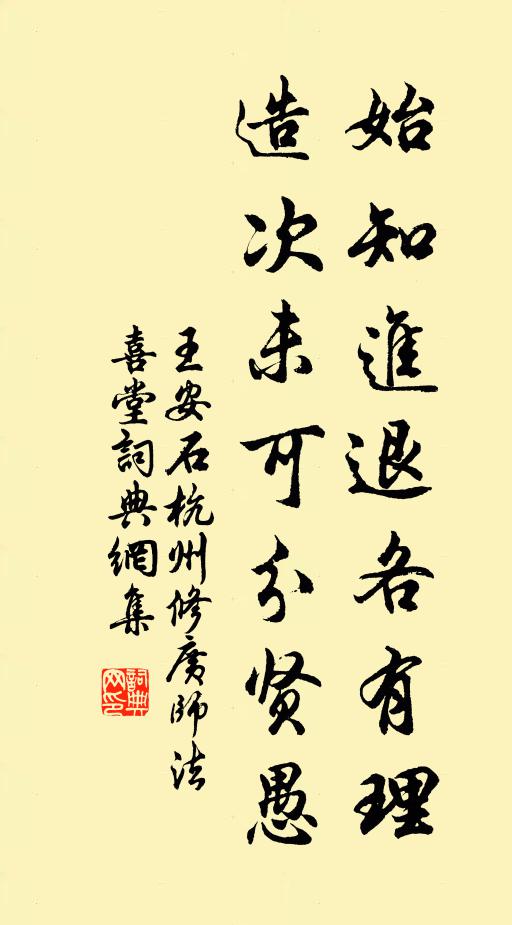 始知進退各有理
造次未可分賢愚
王安石杭州修廣師法
喜堂詞典網集
詞典
网印